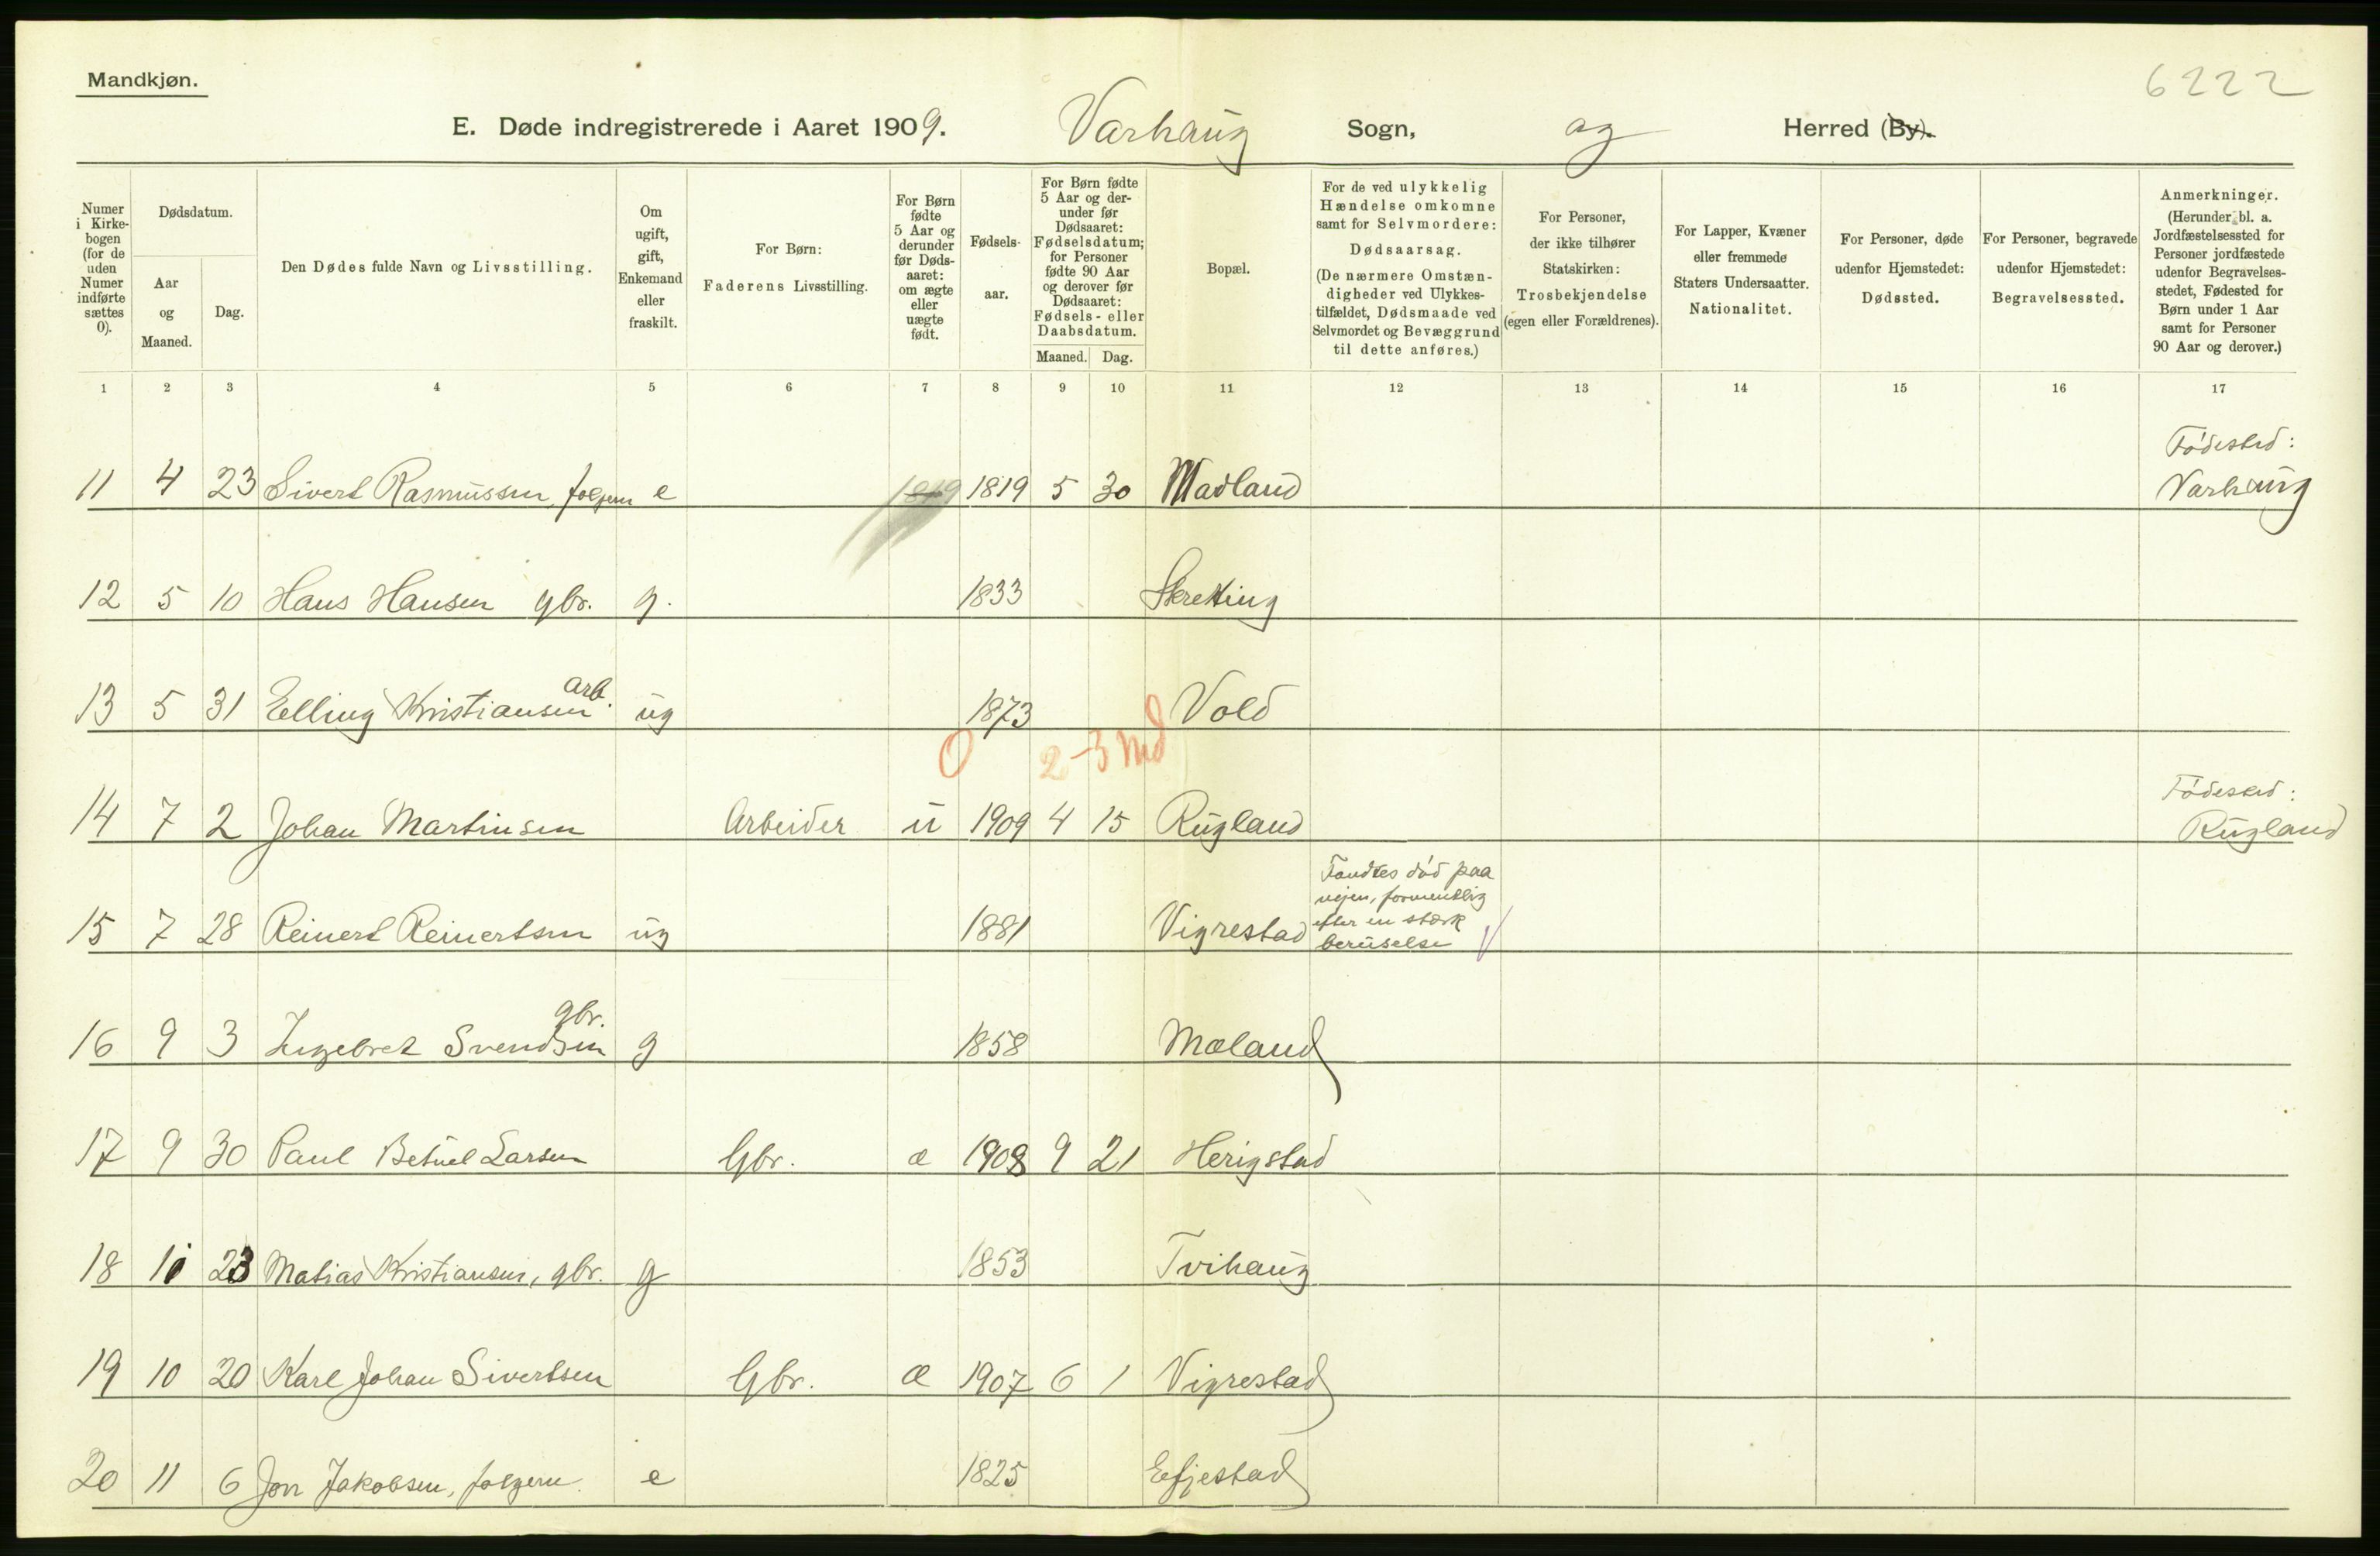 Mandkjøn.
6222
E. Døde indregistrerede i Aaret 1909. Varhaug Sogn, og Herred (By).
Numer i Kirkebogen (for de uden Numer indførte sættes 0).
Dødsdatum.
Aar og Maaned.
Dag.
Den Dødes fulde Navn og Livsstilling.
Om ugift, gift, Enkemand eller fraskilt.
For Børn: Faderens Livsstilling.
For Børn fødte 5 Aar og derunder før Dødsaaret: om ægte eller uægte født.
Fødselsaar.
For Børn fødte 5 Aar og derunder før Dødsaaret: Fødselsdatum; for Personer fødte 90 Aar og derover før Dødsaaret: Fødsels- eller Daabsdatum.
Maaned. Dag.
Bopæl.
For de ved ulykkelig Hændelse omkomne samt for Selvmordere: Dødsaarsag. (De nærmere Omstændigheder ved Ulykkestilfældet, Dødsmaade ved Selvmordet og Bevæggrund til dette anføres.)
For Personer, der ikke tilhører Statskirken: Trosbekjendelse (egen eller Forældrenes).
For Lapper, Kvæner eller fremmede Staters Undersaatter. Nationalitet.
For Personer, døde udenfor Hjemstedet: Dødssted.
For Personer, begravede udenfor Hjemstedet: Begravelsessted.
Anmerkninger. (Herunder bl. a. Jordfæstelsessted for Personer jordfæstede udenfor Begravelsesstedet, Fødested for Børn under 1 Aar samt for Personer 90 Aar og derover.)
1 2 3 4 5 6 7 8 9 10 11 12 13 14 15 16 17
Födested:
11 4 23 Sivert Rasmussen, folgem e 1819 1819 5 30 Madland Varhaug
12 5 10 Hans Hansen gbr. g. 1833 Skretting
arb.
13 5 31 Elling Kristiansen ug 1873 Vold
0 2-3 Md
Födested:
14 7 2 Johan Martinsen Arbeider u 1909 4 15 Rugland Rugland
Fandtes död paa
vejen, formentlig
efter en stærk
15 7 28 Reinert Reinertsen ug 1881 Vigrestad beruselse
gbr.
16 9 3 Ingebret Svendsen g 1858 Mæland
17 9 30 Paul Betuel Larsen Gbr. æ 1908 9 21 Herigstad
18 10 23 Matias Kristiansen, gbr. g 1853 Tvihaug
19 10 20 Karl Johan Sivertsen Gbr. æ 1907 6 1 Vigrestad
20 11 6 Jon Jakobsen, folgem. e 1825 Efjestad